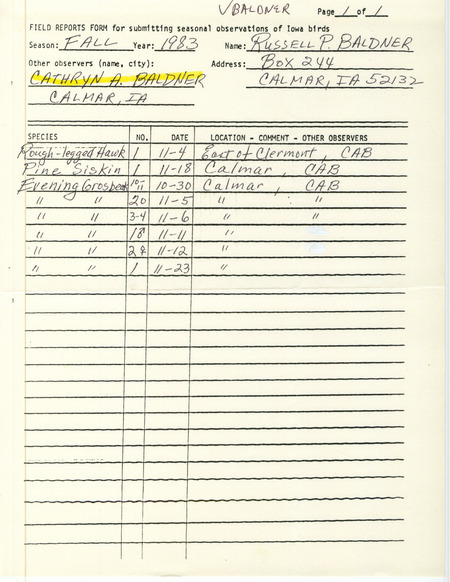 √BALDNER Page 1 of 1
FIELD REPORTS FORM for submitting seasonal observations of Iowa birds
Season: FALL Year: 1983 Name: RUSSELL P. BALDNER
Other observers (name, city): Address: BOX 244
CATHRYN A. BALDNER CALMAR, IA 52132
CALMAR, IA
SPECIES NO. DATE LOCATION - COMMENT - OTHER OBSERVERS
Rough-legged Hawk 1 11-4 East of Clermont, CAB
Pine Siskin 1 11-18 Calmar, CAB
Evening Grosbeak 10-11 10-30 Calmar, CAB
" " 20 11-5 " "
" " 3-4 11-6 " "
" " 18 11-11 "
" " 11-12 "
" " 1 11-23 "